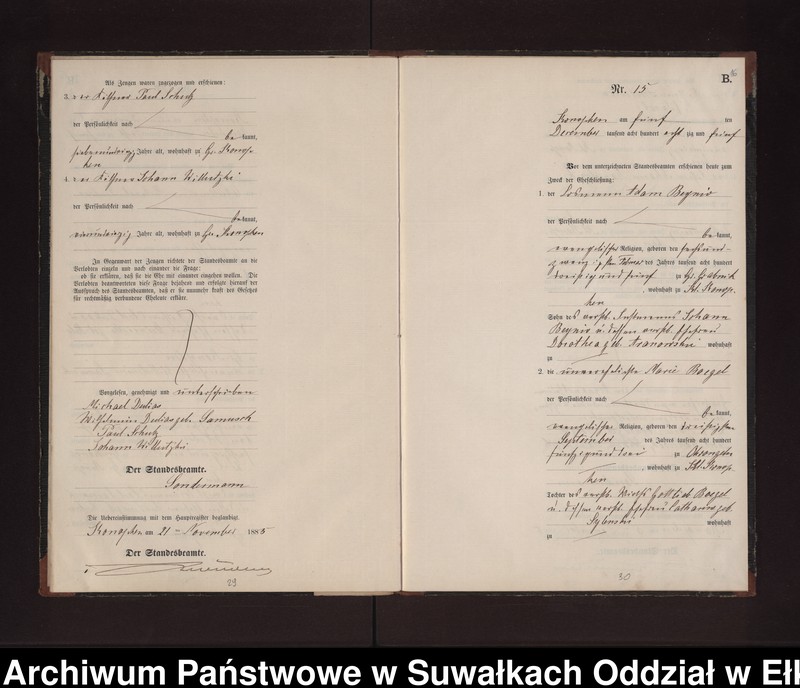 Als Zeugen waren zugezogen und erschienen:
3. der Käthner Paul Schulz
der Persönlichkeit nach
be kannt,
Jahre alt, wohnhaft zu Gr. Konop-
ken
4. der Käthner Johann Willutzki
der Persönlichkeit nach
be kannt,
Jahre alt, wohnhaft zu Gr. Konopken
In Gegenwart der Zeugen richtete der Standesbeamte an die
Verlobten einzeln und nach einander die Frage:
ob sie erklären, daß sie die Ehe mit einander eingehen wollen. Die
Verlobten beantworteten diese Frage bejahend und erfolgte hierauf der
Ausspruch des Standesbeamten, daß er sie nunmehr kraft des Gesetzes
für rechtmäßig verbundene Eheleute erkläre.
Vorgelesen, genehmigt und unterschrieben
Michael Dudas
Wilhelmine Dudas geb.
Paul Schulz
Johann Willutzki
Der Standesbeamte.
Sondermann
Die Uebereinstimmung mit dem Hauptregister beglaubigt.
Konopken am 21 ten November 1885
Der Standesbeamte.
29
B.
Nr. 15
Konopken am fünf ten
Dezember tausend acht hundert acht zig und fünf
Vor dem unterzeichneten Standesbeamten erschienen heute zum
Zweck der Eheschließung:
1. der Losmann Adam Beynio
der Persönlichkeit nach
be kannt,
evangelischer Religion, geboren den sechsund-
zwanzigsten Februar des Jahres tausend acht hundert
dreißig und fünf zu Gr. Gablick
, wohnhaft zu Kl. Konop-
ken
Sohn des verst. Instmanns Johann
Beynio u. dessen verst. Ehefrau
Dorothea geb. wohnhaft
zu
2. die unverehelichte Marie Boegel
der Persönlichkeit nach
be kannt,
evangelischer Religion, geboren den dreißigsten
September des Jahres tausend acht hundert
fünfzig und drei zu
, wohnhaft zu Kl. Konop-
ken
Tochter des verst. Wirths Gottlieb Boegel
u. dessen verst. Ehefrau Catharina geb.
wohnhaft
zu
30
Archiwum Państwowe w Suwałkach Oddział w Ełk